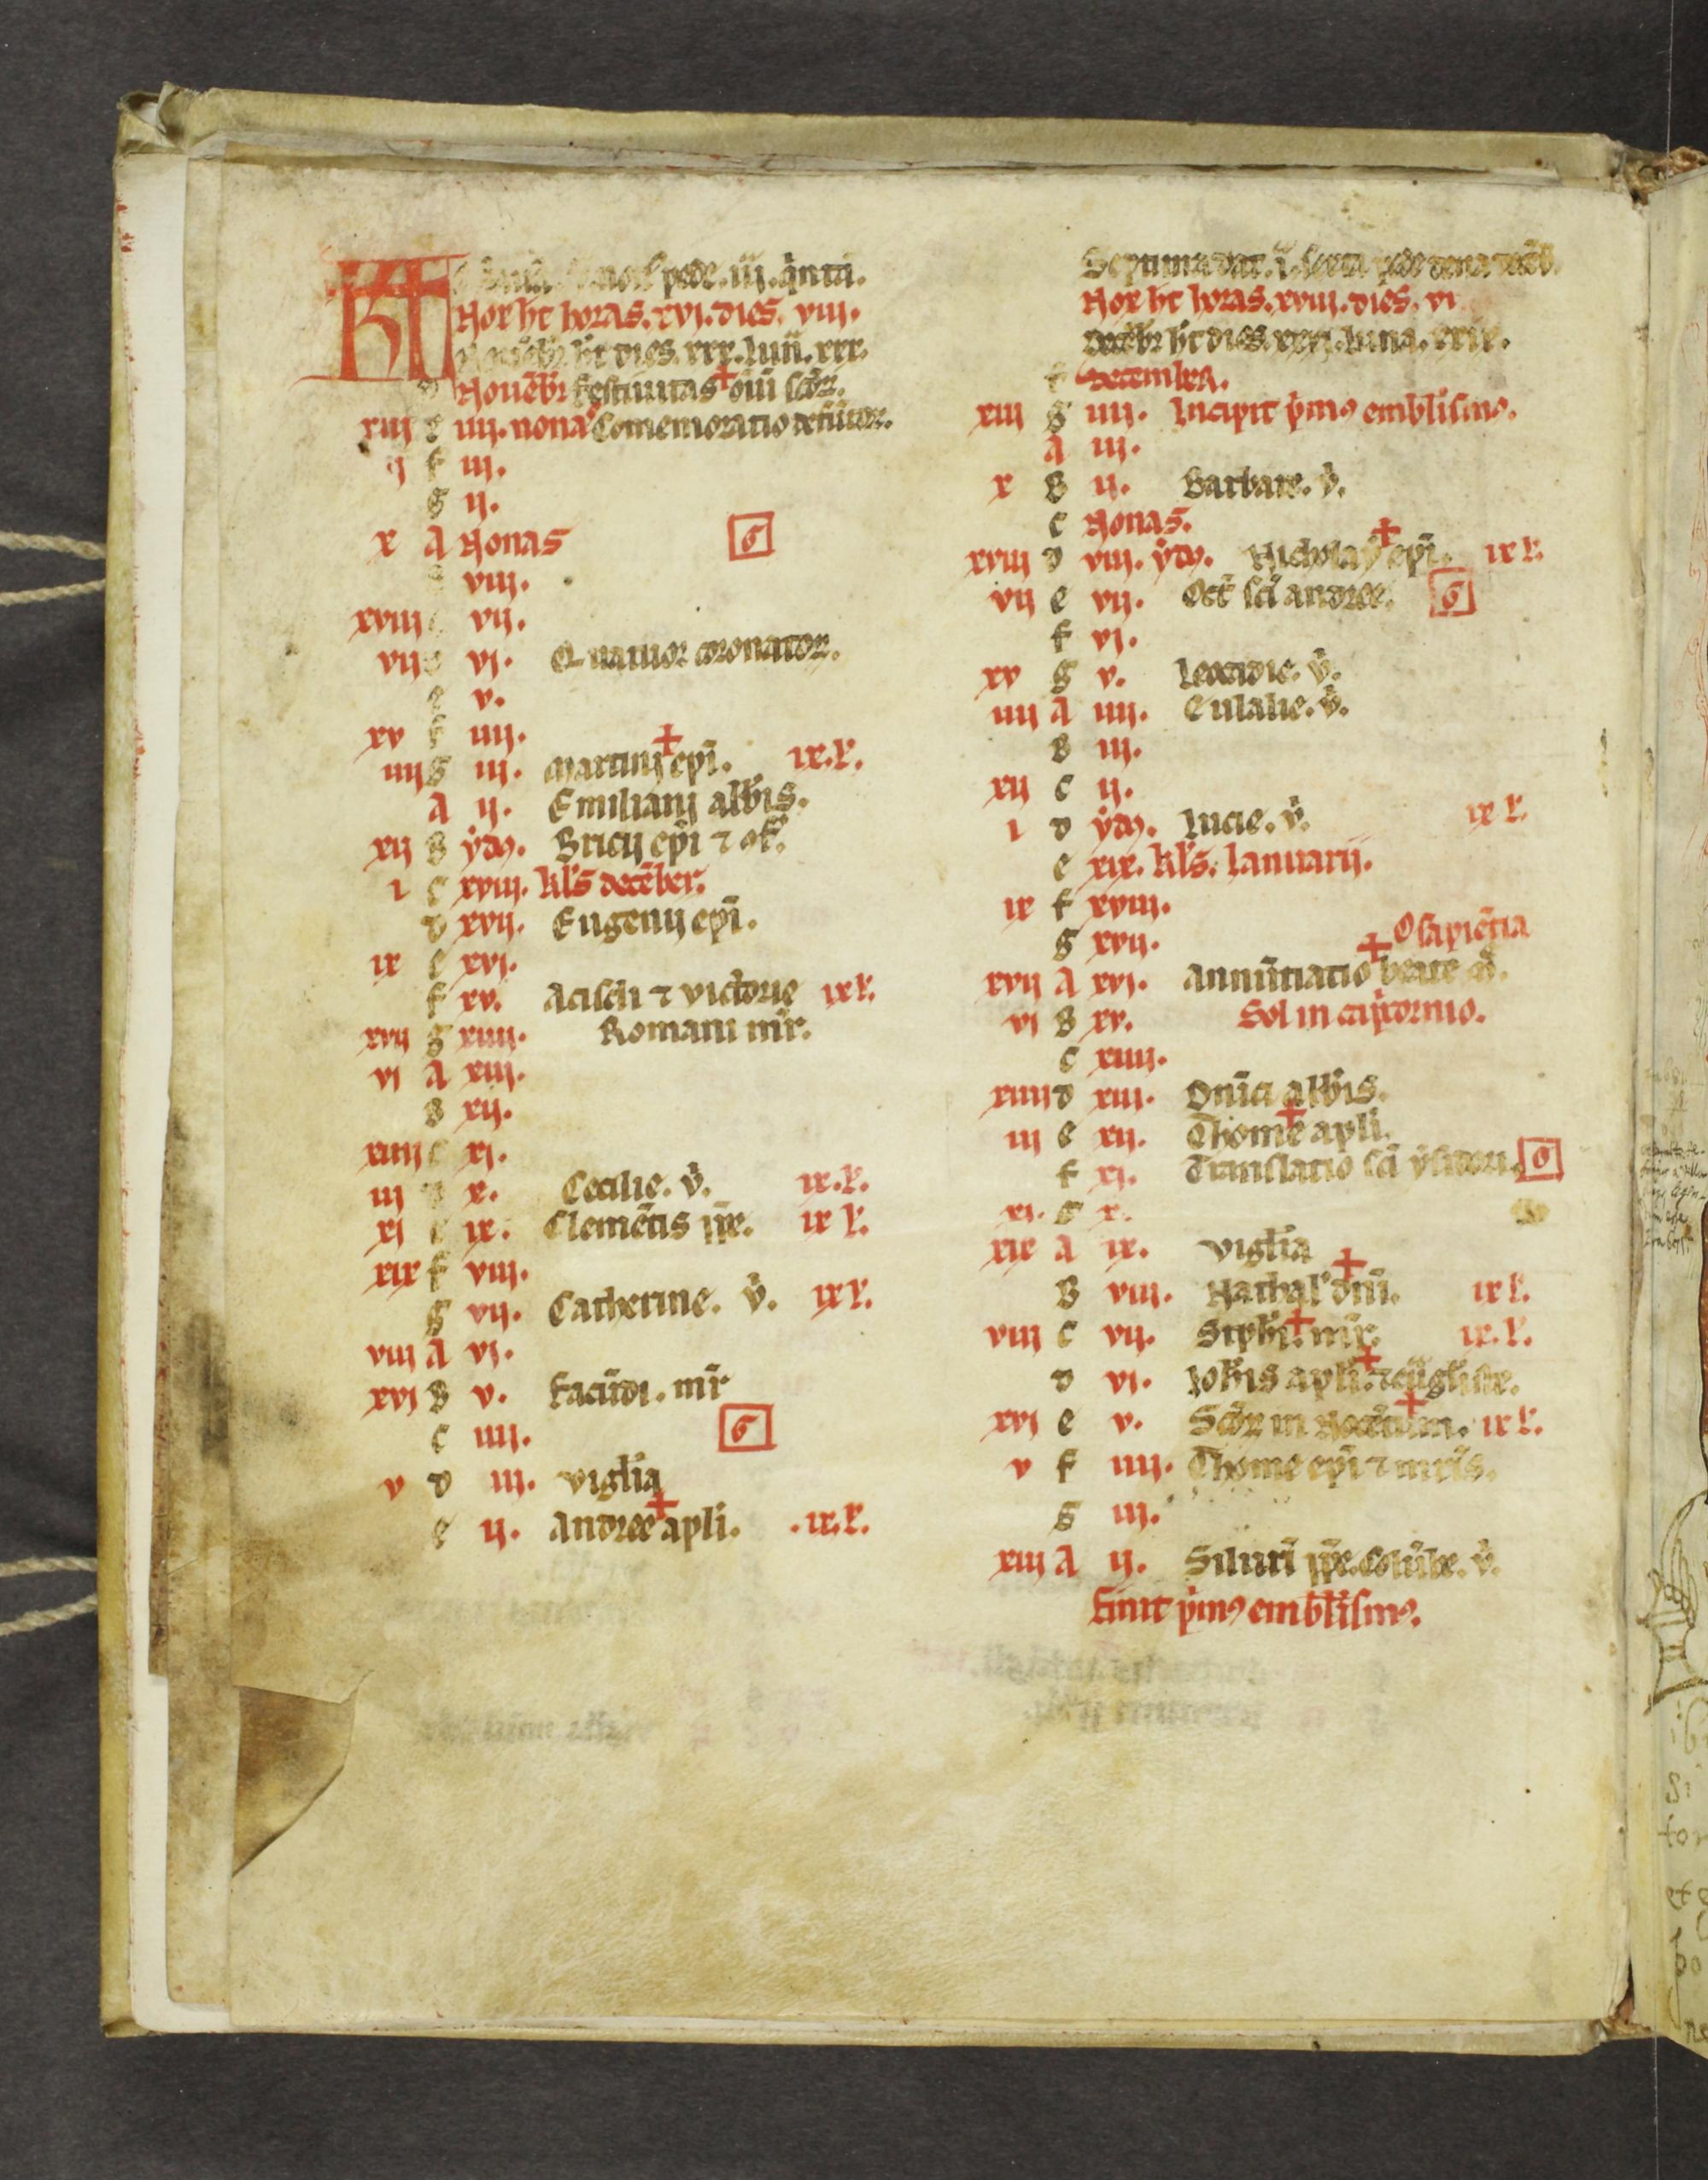 KL pede. iij. q̇ntā.
Nox ht horas. xvj. dies. viij.
ht dies. xxx. lun̄. xxx.
d Nouēbr̄ Festiuitas om̄ scōꝝ.
xiij e iiij. nonaˢ Comemoratio defūctoꝝ.
ij f iij.
g ij.
x A Nonas G
viij.
xviij vij.
vij d vj. Quatuor coronatoꝝ.
e v.
xv f iiij.
iiij g iij. Martinj epī. ix. l'.
A ij. Emilianj abb̄is.
xij B ẏdꝰ. Bricij epī ⁊ of̄.
i c xviij. kl's decēber.
d xvij. Eugenij epī.
ix e xvj.
f xv. Aciscli ⁊ victorie ix l'.
xvij g xiiij. Romani mr̄.
vj A xiij.
B xij.
xiiij c xj.
iij d x. Cecilie. v̇. ix. l'.
xj e ix. Clemētis pp̄e. ix l'.
xix f viij.
g vij. Catherine. v̇. ix l'.
viij A vj.
xvj B v. Facūdi. mr̄
c iiij. G
v d iij. vigl'ia
e ij. Andree apl'i. . ix. l'.
Septima dat.
Nox ht horas. xviij. dies. vj
decēbr̄ ht dies. xxxj. luna. xxix.
f decembrꝭ.
xiij g iiij. Incipit ṗmꝰ embl'ismꝰ.
A iij.
x B ij. Barbare. v̇.
c Nonas.
xviij d viij. ẏdꝰ. Nicholay epī. ix l'.
vij e vij. Oct̄ scī andree. G
f vj.
xv g v. Leocadie. v̇.
iiij A iiij. Eulalie. v̇.
B iij.
xij c ij.
i d ẏdꝰ. Lucie. v̇. ix l'.
e xix. kl's. Ianuarij.
ix f xviij.
g xvij. O sapiētia
xvij A xvj. Annūtiatio beate m̄.
vj B xv. Sol in cap̄cornio.
c xiiij.
xiiij d xiij. Dn̄ici abb̄is.
iij e xij. Thome apl'i.
f xj. Translatio scī ẏsidori. G
xj. g x.
xix A ix. vigl'ia
B viij. Nathal' dn̄i. ix l'.
viij c vij. Stph̄i. mr̄. ix. l'.
d vj. Ioh̄is apl'i. ⁊ euāgl'iste.
xvj e v. Scōꝝ in nocētium. ix l'.
v f iiij. Thome epī ⁊ mr̄is.
g iij.
xiij A ij. Siluȓi pp̄e. Colūbe. v̇.
Finit ṗmꝰ embl'ismꝰ.